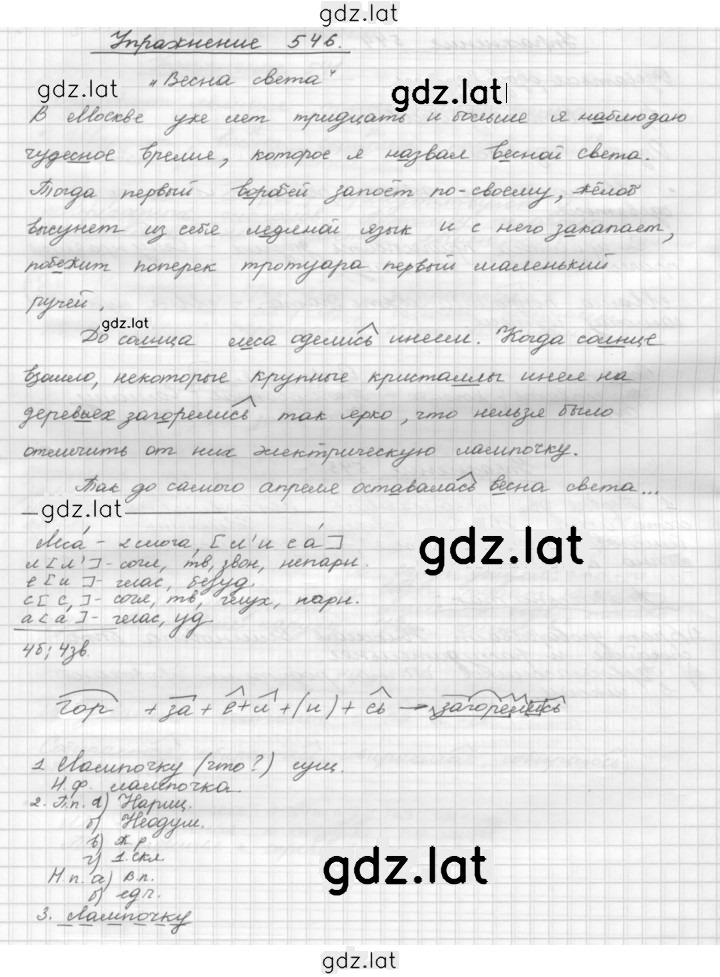 gdz.lat
Упражнение 546.
„Весна света"
gdz.lat
gdz.lat
В Москве уже лет тридцать и больше я наблюдаю
чудесное время, которое я назвал весной света.
Тогда первый воробей запоёт по-своему, жёлоб
высунет из себя ледяной язык и с него закапает,
побежит поперек тротуара первый маленький
ручей.
gdz.lat
До солнца леса оделись инеем. Когда солнце
взошло, некоторые крупные кристаллы инея на
деревьех загорелись так ярко, что нельзя было
отличить от них электрическую лампочку.
Так до самого апреля оставалась весна света...
gdz.lat
Леса́ - 2 слога, [л'и са́]
gdz.lat
л [л'] - согл, тв, звон, непарн.
е [и] - глас, безуд.
с [с,] - согл, тв, глух, парн.
а [а,] - глас, уд
4б; 4зв.
гор + за + е + л + (и) + сь → загорелись
1 Лампочку (что?) сущ.
Н.ф. лампочка.
2. П.п. а) Нариц.
б) Неодум.
в) ж.р.
г) 1.скл.
gdz.lat
Н.п. а) В.п.
б) едч.
3. Лампочку
gdz.lat